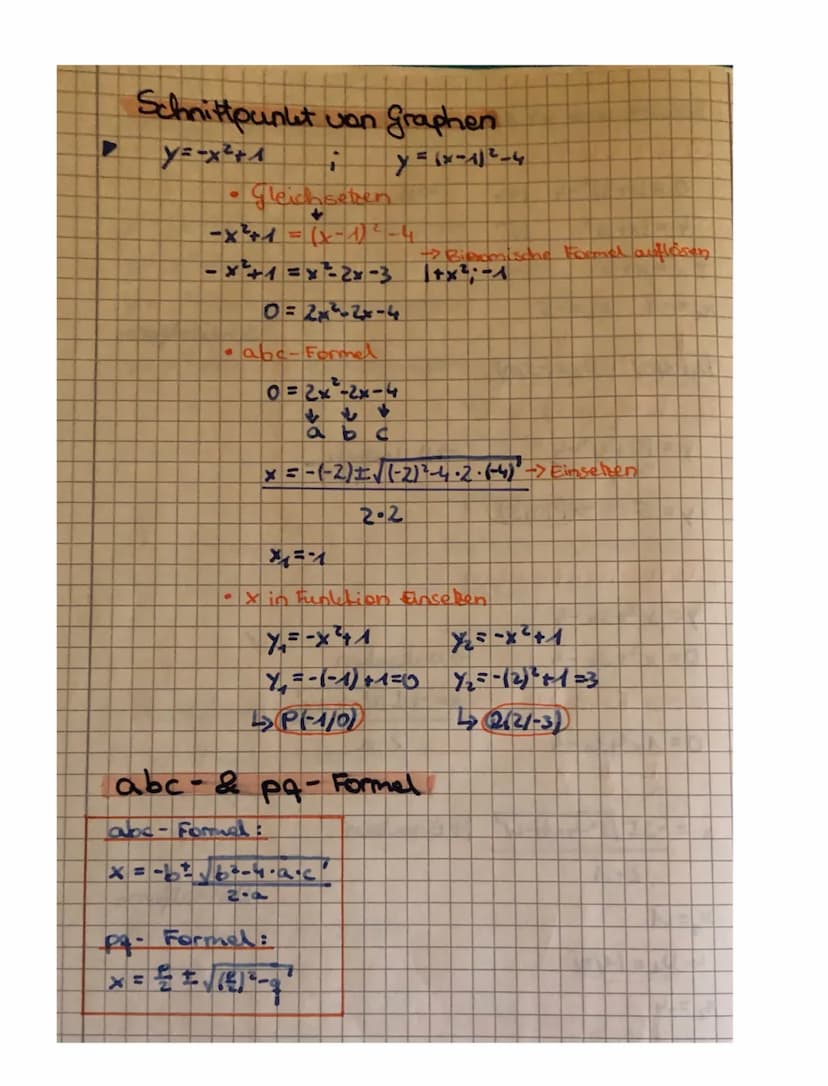 Schnittpunkt von Graphen
y=-x²+1 ; y=(x-1)²-4
• Gleichsetzen
-x²+1 = (x-1)²-4
→ Binomische Formel auflösen
-x²+1 = x²-2x-3 |+x²;-1
0 = 2x²-2x-4
• abc-Formel
0 = 2x²-2x-4
↓ ↓ ↓
a b c
x = -(-2)±√(-2)²-4·2·(-4) → Einsetzen
2·2
x₁=-1
• x in Funktion Einsetzen
y₁=-x²+1 y₂=-x²+1
y₁=-(-1)+1=0 y₂=-(2)²+1=3
↳ P(-1/0) ↳ Q(2/-3)
abc- & pq-Formel
abc-Formel:
x = -b±√b²-4·a·c
2·a
pq-Formel:
x = p/2 ± √(p/2)²-q